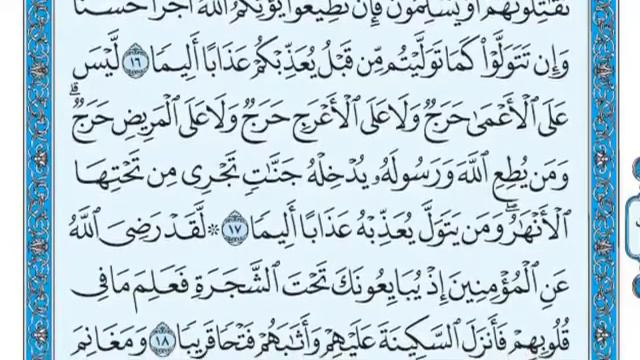 تُقَٰتِلُونَهُمْ أَوْ يُسْلِمُونَ فَإِن تُطِيعُوا۟ يُؤْتِكُمُ ٱللَّهُ أَجْرًا حَسَنًا
وَإِن تَتَوَلَّوْا۟ كَمَا تَوَلَّيْتُم مِّن قَبْلُ يُعَذِّبْكُمْ عَذَابًا أَلِيمًا ١٦ لَّيْسَ
عَلَى ٱلْأَعْمَىٰ حَرَجٌ وَلَا عَلَى ٱلْأَعْرَجِ حَرَجٌ وَلَا عَلَى ٱلْمَرِيضِ حَرَجٌ ۗ
وَمَن يُطِعِ ٱللَّهَ وَرَسُولَهُۥ يُدْخِلْهُ جَنَّٰتٍ تَجْرِى مِن تَحْتِهَا
ٱلْأَنْهَٰرُ ۖ وَمَن يَتَوَلَّ يُعَذِّبْهُ عَذَابًا أَلِيمًا ١٧ ۞ لَّقَدْ رَضِىَ ٱللَّهُ
عَنِ ٱلْمُؤْمِنِينَ إِذْ يُبَايِعُونَكَ تَحْتَ ٱلشَّجَرَةِ فَعَلِمَ مَا فِى
قُلُوبِهِمْ فَأَنزَلَ ٱلسَّكِينَةَ عَلَيْهِمْ وَأَثَٰبَهُمْ فَتْحًا قَرِيبًا ١٨ وَمَغَانِمَ